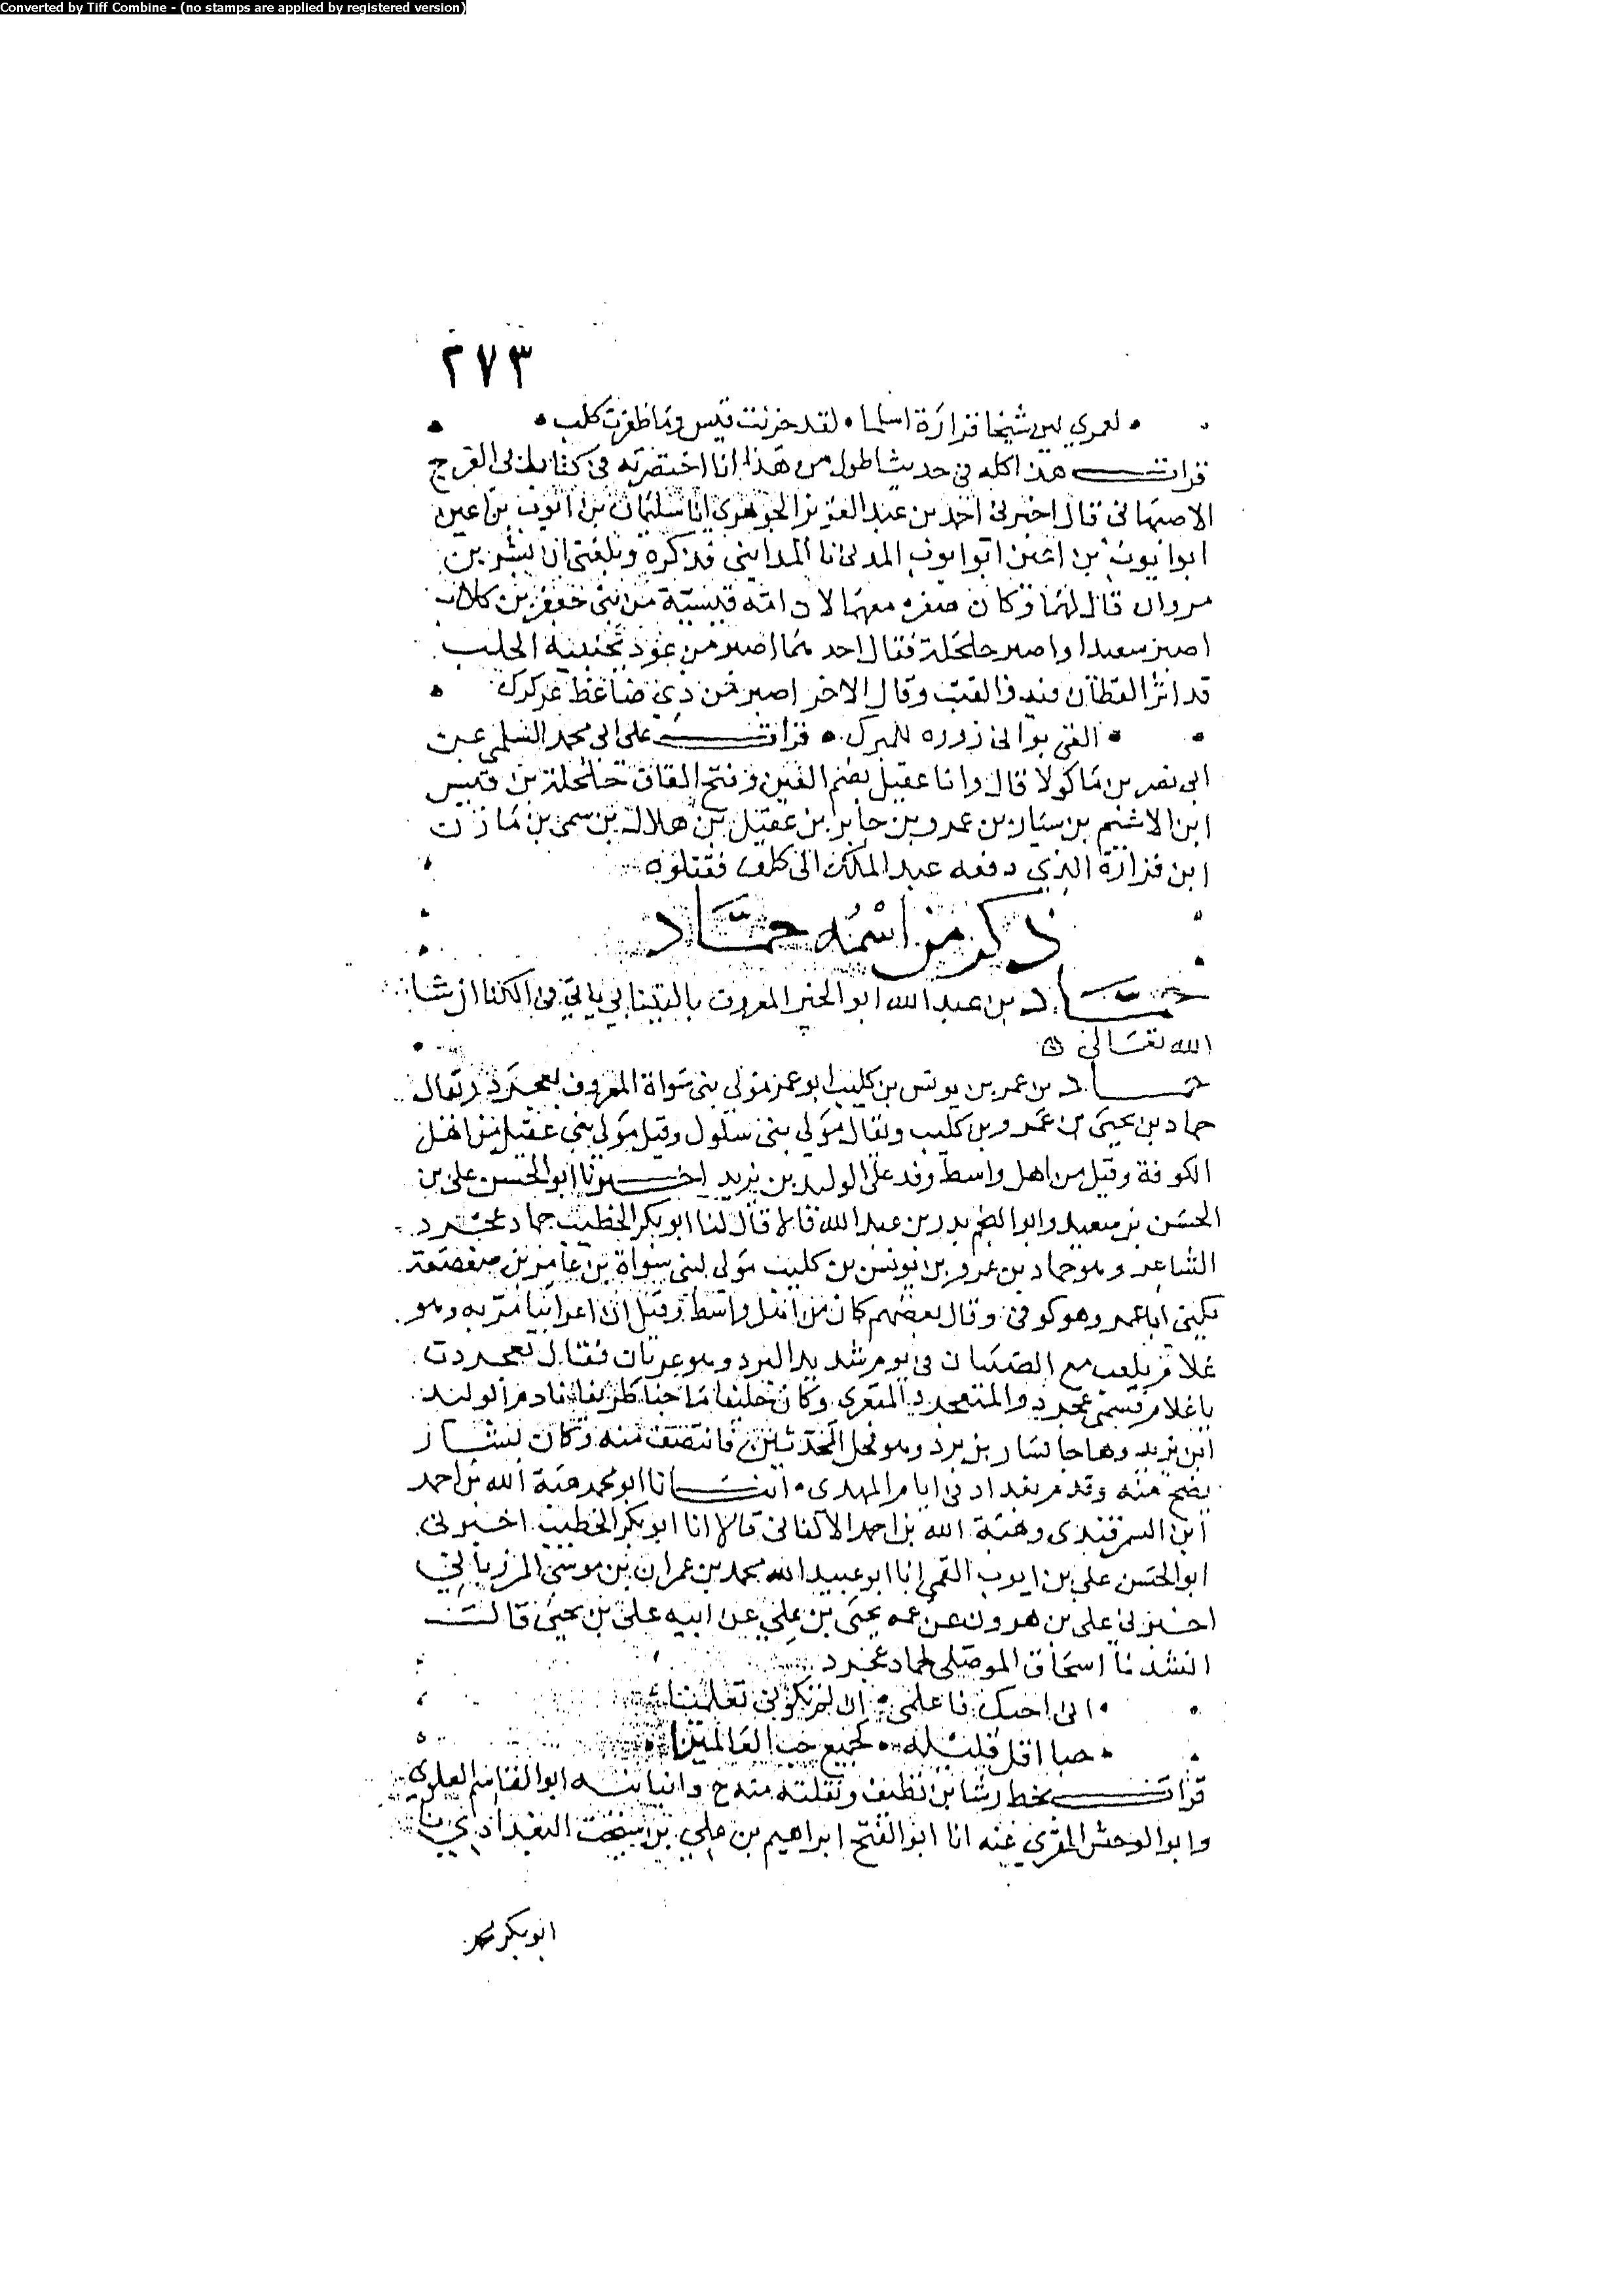 Converted by Tiff Combine - (no stamps are applied by registered version)
٢٧٣
لعمري لين شيخا فزارة اسلما • لقد خزيت قيس وما ظفرت كلب •
قرات هذا كله في حديث اطول من هذا انا اختصرته في كتاب ابي الفرج
الاصبهاني قال اخبرني احمد بن عبد العزيز الجوهري انا سليمان بن ايوب بن اعين
ابو ايوب بن ابو ايوب المدني نا المدايني فذكره وبلغني ان بشر بن
مروان قال لهما وكان معهما لان امه قيسية من بني جعفر بن كلاب
اصبر سعيد او اصبر حلحلة فقال احدهما اصبر من عود بجنبيه الجلب
قد اثر البطان فيه والقتب وقال الاخر اصبر من ذي ضاغط عركرك •
• القى بوانى زوره للمبرك • قرات على ابي محمد السلمي عن
ابي نصر بن ماكولا قال واما عقيل بضم العين وفتح القاف حلحلة بن قيس
ابن الاشيم بن سيار بن عمرو بن جابر بن عقيل بن هلال بن سمي بن مازن
ابن فزارة الذي دفعه عبد الملك الى كلب فقتلوه
ذكر من اسمه حمَّاد
حمَّاد بن عبد الله ابو الخير المعروف بالتيناتي ياتي في الكنا ان شا
الله تعالى
حماد بن عمر بن يونس بن كليب ابو عمر مولى بني سواة المعروف بعجرد ويقال
حماد بن يحيى بن عمرو بن كليب ويقال مولى بني سلول وقيل مولى بني عقيل من اهل
الكوفة وقيل من اهل واسط وفد على الوليد بن يزيد اخبرنا ابو الحسن علي بن
الحسن بن سعيد وابو النجم بدر بن عبد الله قالا قال لنا ابو بكر الخطيب حماد عجرد
الشاعر وهو حماد بن عمرو بن يونس بن كليب مولى لبني سواة بن عامر بن صعصعة
يكنى ابا عمر وهو كوفي وقال بعضهم كان من اهل واسط وقيل ان اعرابيا مر به وهو
غلام يلعب مع الصبيان في يوم شديد البرد وهو عريان فقال تعجردت
يا غلام فسمي عجرد والمتعجرد المتعري وكان خليعا ماجنا ظريفا نادم الوليد
ابن يزيد وهاجا بشار بن برد وهو فحل المحدثين فانتصف منه وكان بشار
يضج منه وقدم بغداد في ايام المهدي • انبانا ابو محمد هبة الله بن احمد
ابن السمرقندي وهبة الله بن احمد الاكفاني قالا انا ابو بكر الخطيب اخبرني
ابو الحسن علي بن ايوب القمي انا ابو عبيد الله محمد بن عمران بن موسى المرزباني
اخبرني علي بن هرون عن عمه يحيى بن علي عن ابيه علي بن يحيى قال
انشدنا اسحاق الموصلي لحماد عجرد
• اني احبك فاعلمي • ان لم تكوني تعلمينا
• حبا اقل قليله • كجميع حب العالمينا •
قرات بخط رشا بن نظيف ونقلته منه ح وانبانيه ابو القاسم العلوي
وابو الوحش المقرئ عنه انا ابو الفتح ابراهيم بن علي بن سيبخت البغدادي نا
ابو بكر محمد